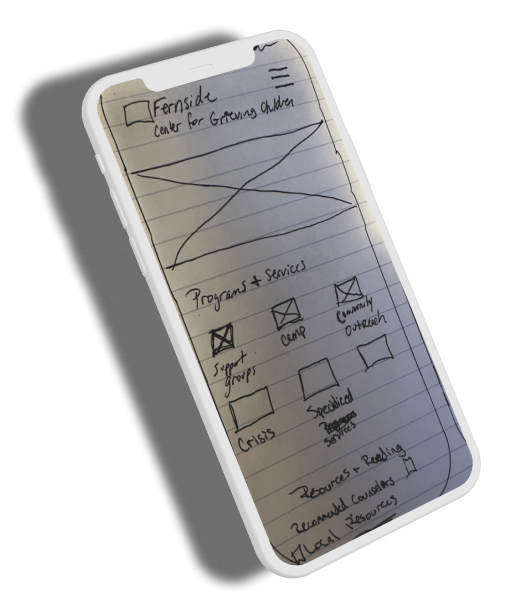 Fernside
Center for Grieving Children
Programs + Services
Support groups
Camp
Community Outreach
Crisis
Specialized
Services
Resources + Reading
Recommended Counselors
Local Resources